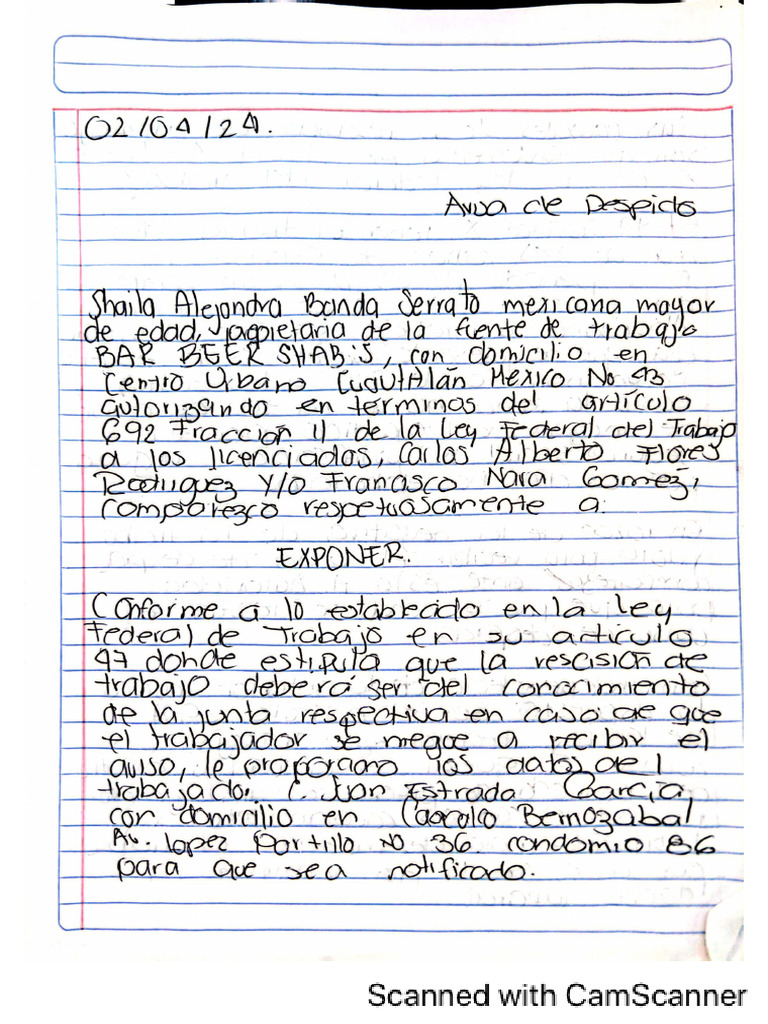 02/04/24.
Aviso de Despido
Shaila Alejandra Banda Serrato mexicana mayor
de edad, propietaria de la fuente de trabajo
BAR BEER SHAB'S, con domicilio en
Centro Urbano Cuautitlán Mexico No 43
autorizando en terminos del artículo
692 Fracción II de la Ley Federal del Trabajo
a los licenciados, Carlos Alberto Flores
Rodriguez Y/O Francisco Nava Gomez,
comparezco respetuosamente a:
EXPONER.
Conforme a lo establecido en la Ley
Federal de Trabajo en su articulo
47 donde estipula que la rescisión de
trabajo deberá ser del conocimiento
de la junta respectiva en caso de que
el trabajador se niegue a recibir el
aviso, le proporciono los datos del
trabajador C. Estrada Garcia
con domicilio en
Av. Lopez Portillo No 36 condomio 86
para que sea notificado.
Scanned with CamScanner